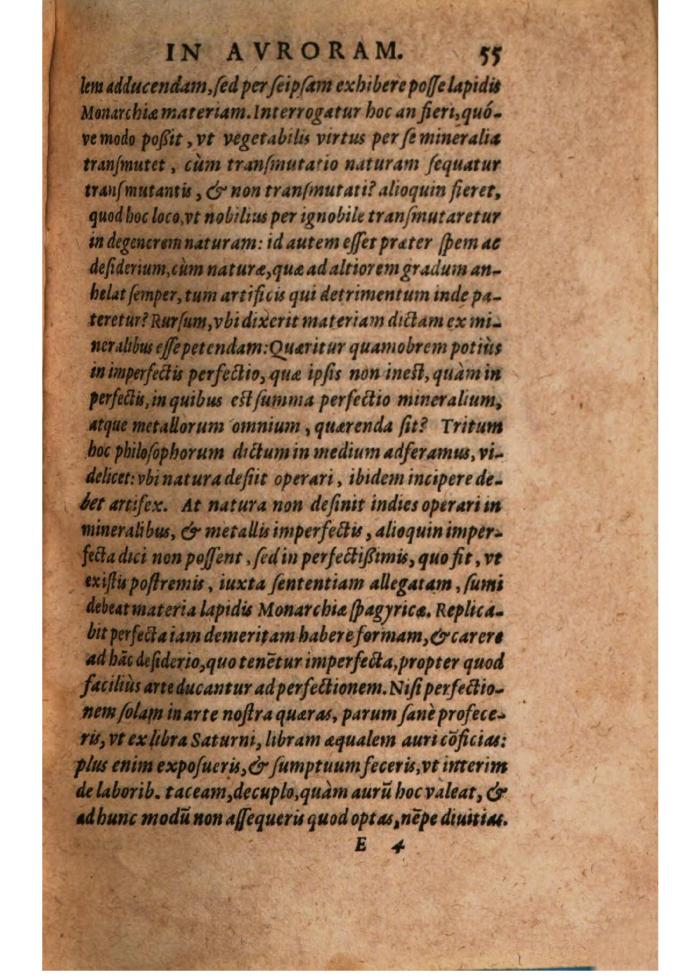 IN AVRORAM. 55
lem adducendam, sed per seipsam exhibere posse lapidis
Monarchiæ materiam. Interrogatur hoc an fieri, quó-
ve modo poßit, vt vegetabilis virtus per se mineralia
transmutet, cùm transmutatio naturam sequatur
transmutantis, & non transmutati? alioquin fieret,
quod hoc loco, vt nobilius per ignobile transmutaretur
in degenerem naturam: id autem esset præter spem ac
desiderium, cùm naturæ, quæ ad altiorem gradum an-
helat semper, tum artificis qui detrimentum inde pa-
teretur? Rursum, vbi dixerit materiam dictam ex mi-
neralibus esse petendam: Quæritur quamobrem potiùs
in imperfectis perfectio, quæ ipsis non inest, quàm in
perfectis, in quibus est summa perfectio mineralium,
atque metallorum omnium, quærenda sit? Tritum
hoc philosophorum dictum in medium adferamus, vi-
delicet: vbi natura desiit operari, ibidem incipere de-
bet artifex. At natura non desinit indies operari in
mineralibus, & metallis imperfectis, alioquin imper-
fecta dici non possent, sed in perfectißimis, quo fit, vt
ex istis postremis, iuxta sententiam allegatam, sumi
debeat materia lapidis Monarchiæ spagyricæ. Replica-
bit perfecta iam demeritam habere formam, & carere
ad hāc desiderio, quo tenētur imperfecta, propter quod
faciliùs arte ducantur ad perfectionem. Nisi perfectio-
nem solam in arte nostra quæras, parum sanè profece-
ris, vt ex libra Saturni, libram æqualem auri cōficias:
plus enim exposueris, & sumptuum feceris, vt interim
de laborib. taceam, decuplo, quàm aurū hoc valeat, &
ad hunc modū non assequeris quod optas, nēpe diuitias.
E 4